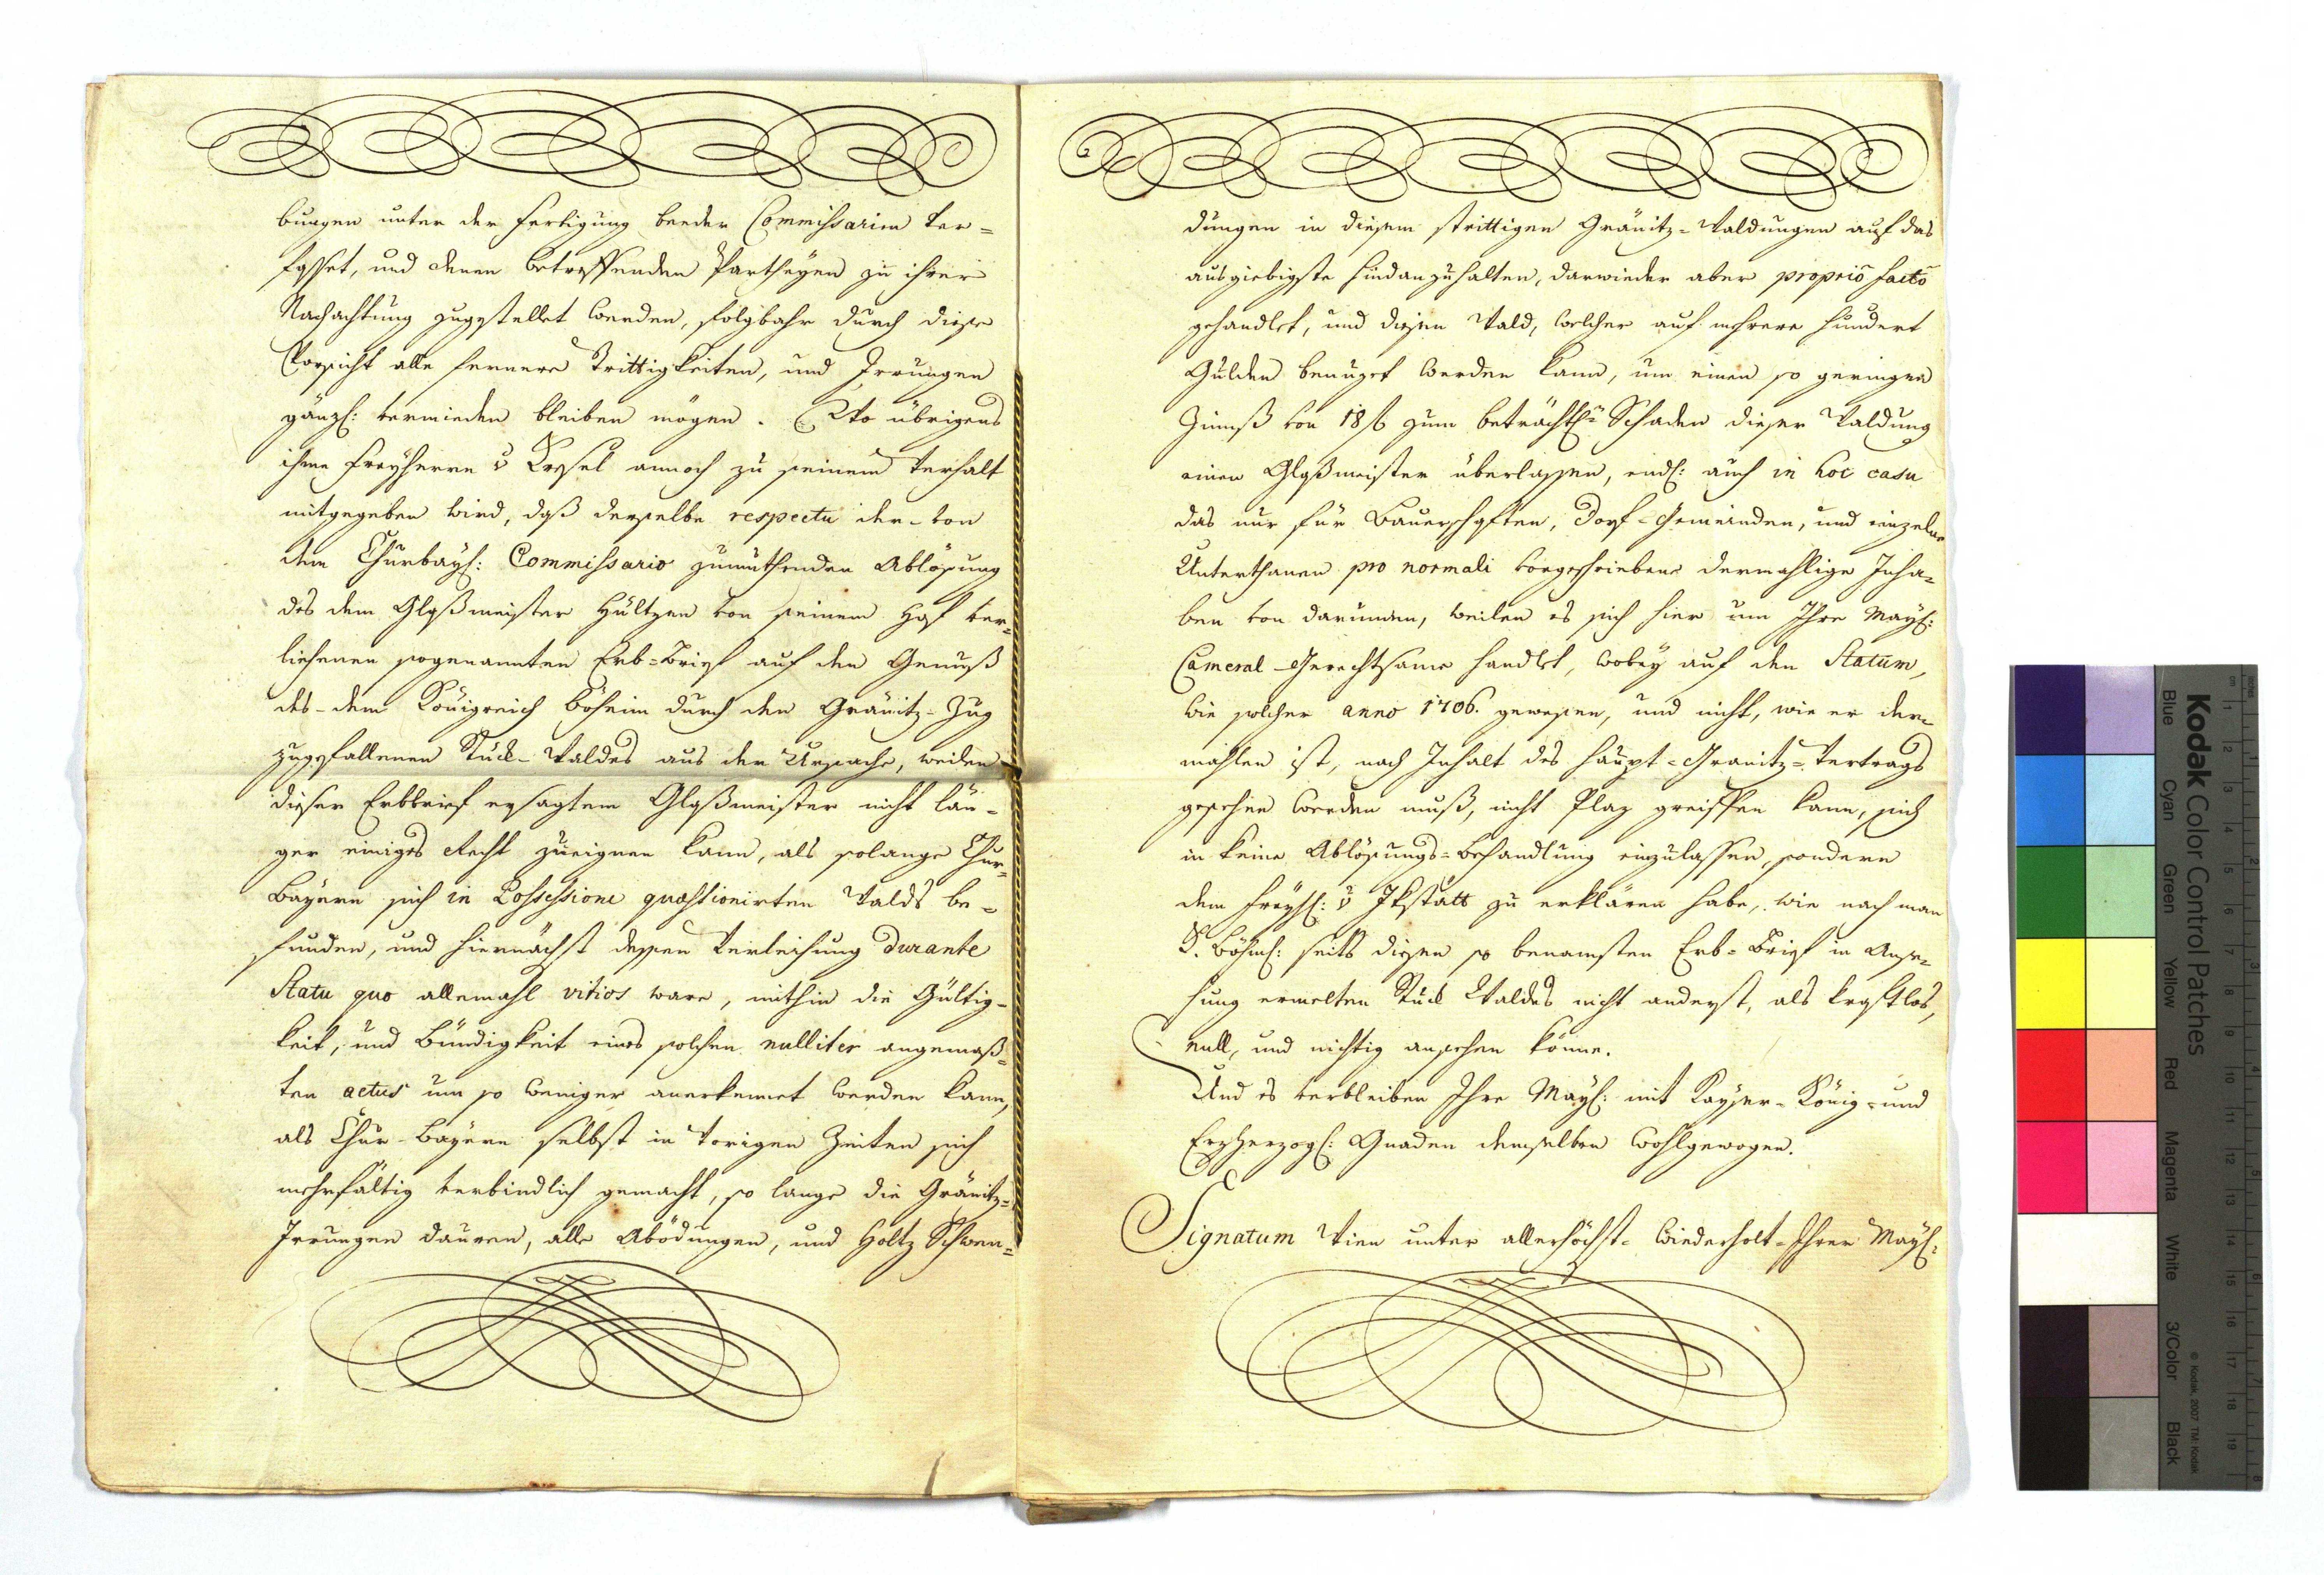 bungen unter der Fertigung beeder Commissarien ver=
fasset, und denen betreffenden Partheyen zu ihrer
Nachachtung zugestellet werden, folgbahr durch diese
Vorsicht alle fernere Strittigkeiten, und Irrungen
gänzl: vermieden bleiben mögen. Wo übrigens
ihme Freyherrn v Kresel annoch zu seinem Verhalt
mitgegeben wird, daß derselbe respectu der=von
dem Churbayl: Commissario zumuthenden Ablösung
des dem Glaßmeister Hültzen von seinem Hof ver=
liehenen sogenannten Erb=Brief auf den Genuß
des=dem Königreich Böheim durch den Gränitz=Zug
zugefallenen Stuck=Waldes aus der Ursache, weilen
dieser Erbbrief ersagtem Glaßmeister nicht län=
ger einiges Recht zueignen kann, als solange Chur=
Bayern sich in Possessione quæstionirten Walds be=
funden, und hiernächst dessen Verleihung durante
Statu quo allemahl vitios ware, mithin die Gültig=
keit, und Bündigkeit eines solchen nulliter angemaß=
ten actus um so weniger anerkennet werden kann,
als Chur=Bayern selbst in vorigen Zeiten sich
mehrfältig verbindlich gemacht, so lange die Gränitz=
Irrungen dauren, alle Abödungen, und Holtz Schwen=
dungen in diesem strittigen Gränitz=Waldungen auf das
ausgiebigste hindanzuhalten, darwieder aber propriô factô
gehandlet, und diesen Wald, welcher auf mehrere hundert
Gulden benuzet werden kann, um einen so geringen
Zinnß von 18 f zum beträchtln Schaden dieser Waldung
einen Glaßmeister überlassen, endl: auch in hoc casu
das nur für Bauerschaften, Dorf=Gemeinden, und einzelne
Unterthanen pro normali vorgeschriebene dermahlige Inha=
ben von darumen, weilen es sich hier um Ihre Mayl:
Cameral=Gerechtsame handlet, wobey auf den Statum,
wie solcher anno 1706. gewesen, und nicht, wie er der=
mahlen ist, nach Inhalt des Haupt=Gränitz=Vertrags
gesehen werden muß, nicht Plaz greiffen kann, sich
in keine Ablösungs=Behandlung einzulassen, sondern
dem Freyh: v Ikstätt zu erklären habe, wie nach man
K. Böhml: seits diesen so benamsten Erb=Brief in Anse=
hung ermelten Stuck Waldes nicht anderst, als kraftlos,
null, und nichtig ansehen könne.
Und es verbleiben Ihre Mayl: mit Kayser=König=und
Erzherzogl: Gnaden demselben wohlgewogen.
Signatum Wien unter allerhöchst=wiederholt=Ihrer Mayl:
Kodak Color Control Patches
Blue Cyan Green Yellow Red Magenta White 3/Color Black
© Kodak, 2007 TM: Kodak